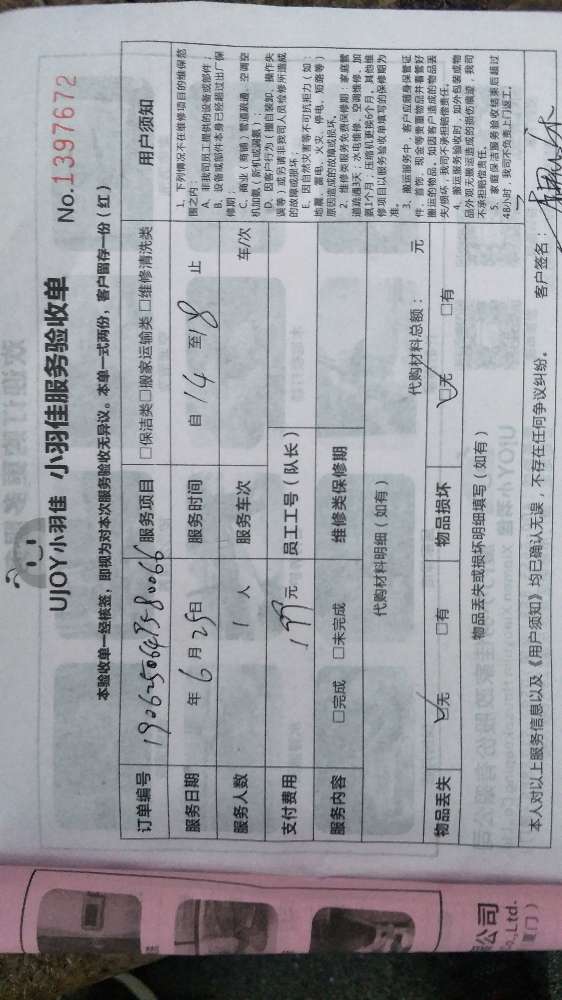 UJOY小羽佳 小羽佳服务验收单
No.1397672
本验收单一经核签，即视为对本次服务验收无异议。本单一式两份，客户留存一份（红）
订单编号
服务项目 □保洁类□搬家运输类 □维修清洗类
用户须知
服务日期 年 6 月 25 日 服务时间 自 14 至 18 止
服务人数 1 人 服务车次 车/次
支付费用 199 元 员工工号（队长）
服务内容 □完成 □未完成 维修类保修期
代购材料明细（如有） 代购材料总额： 元
物品丢失 ☑无 □有 物品损坏 ☑无 □有
物品丢失或损坏明细填写（如有）
1. 下列情况不在维修项目的维保范
围之内：
A. 非我司员工提供的设备或部件；
B. 设备或部件本身已经超过出厂保
修期；
C. 商业（商铺）管道疏通、空调空
机加氨（新机或漏氨）；
D. 因客户行为（擅自装卸、操作失
误等）或另请非我司人员检修所造成
的故障或损坏；
E. 因自然灾害等不可抗拒力（如：
地震、雷电、火灾、停电、短路等）
原因造成的故障或损坏。
2. 维修类服务免费保修期：家庭管
道疏通3天；水电维修、空调维修、加
氨1个月，压缩机更换6个月。其他维
修项目以服务验收单填写的保修期为
准。
3. 搬运服务中，客户应随身保管证
件、首饰、现金等贵重物品并看管好
搬运的物品，如因客户造成的物品丢
失/损坏，我司不承担赔偿责任。
4. 搬运服务验收时，如外包装或物
品外观无搬运造成的损伤痕迹，我司
不承担赔偿责任。
5. 家庭保洁服务验收结束后超过
48小时，我司不负责上门返工。
本人对以上服务信息以及《用户须知》均已确认无误，不存在任何争议纠纷。 客户签名：
公司
Co.,Ltd.
厦门）